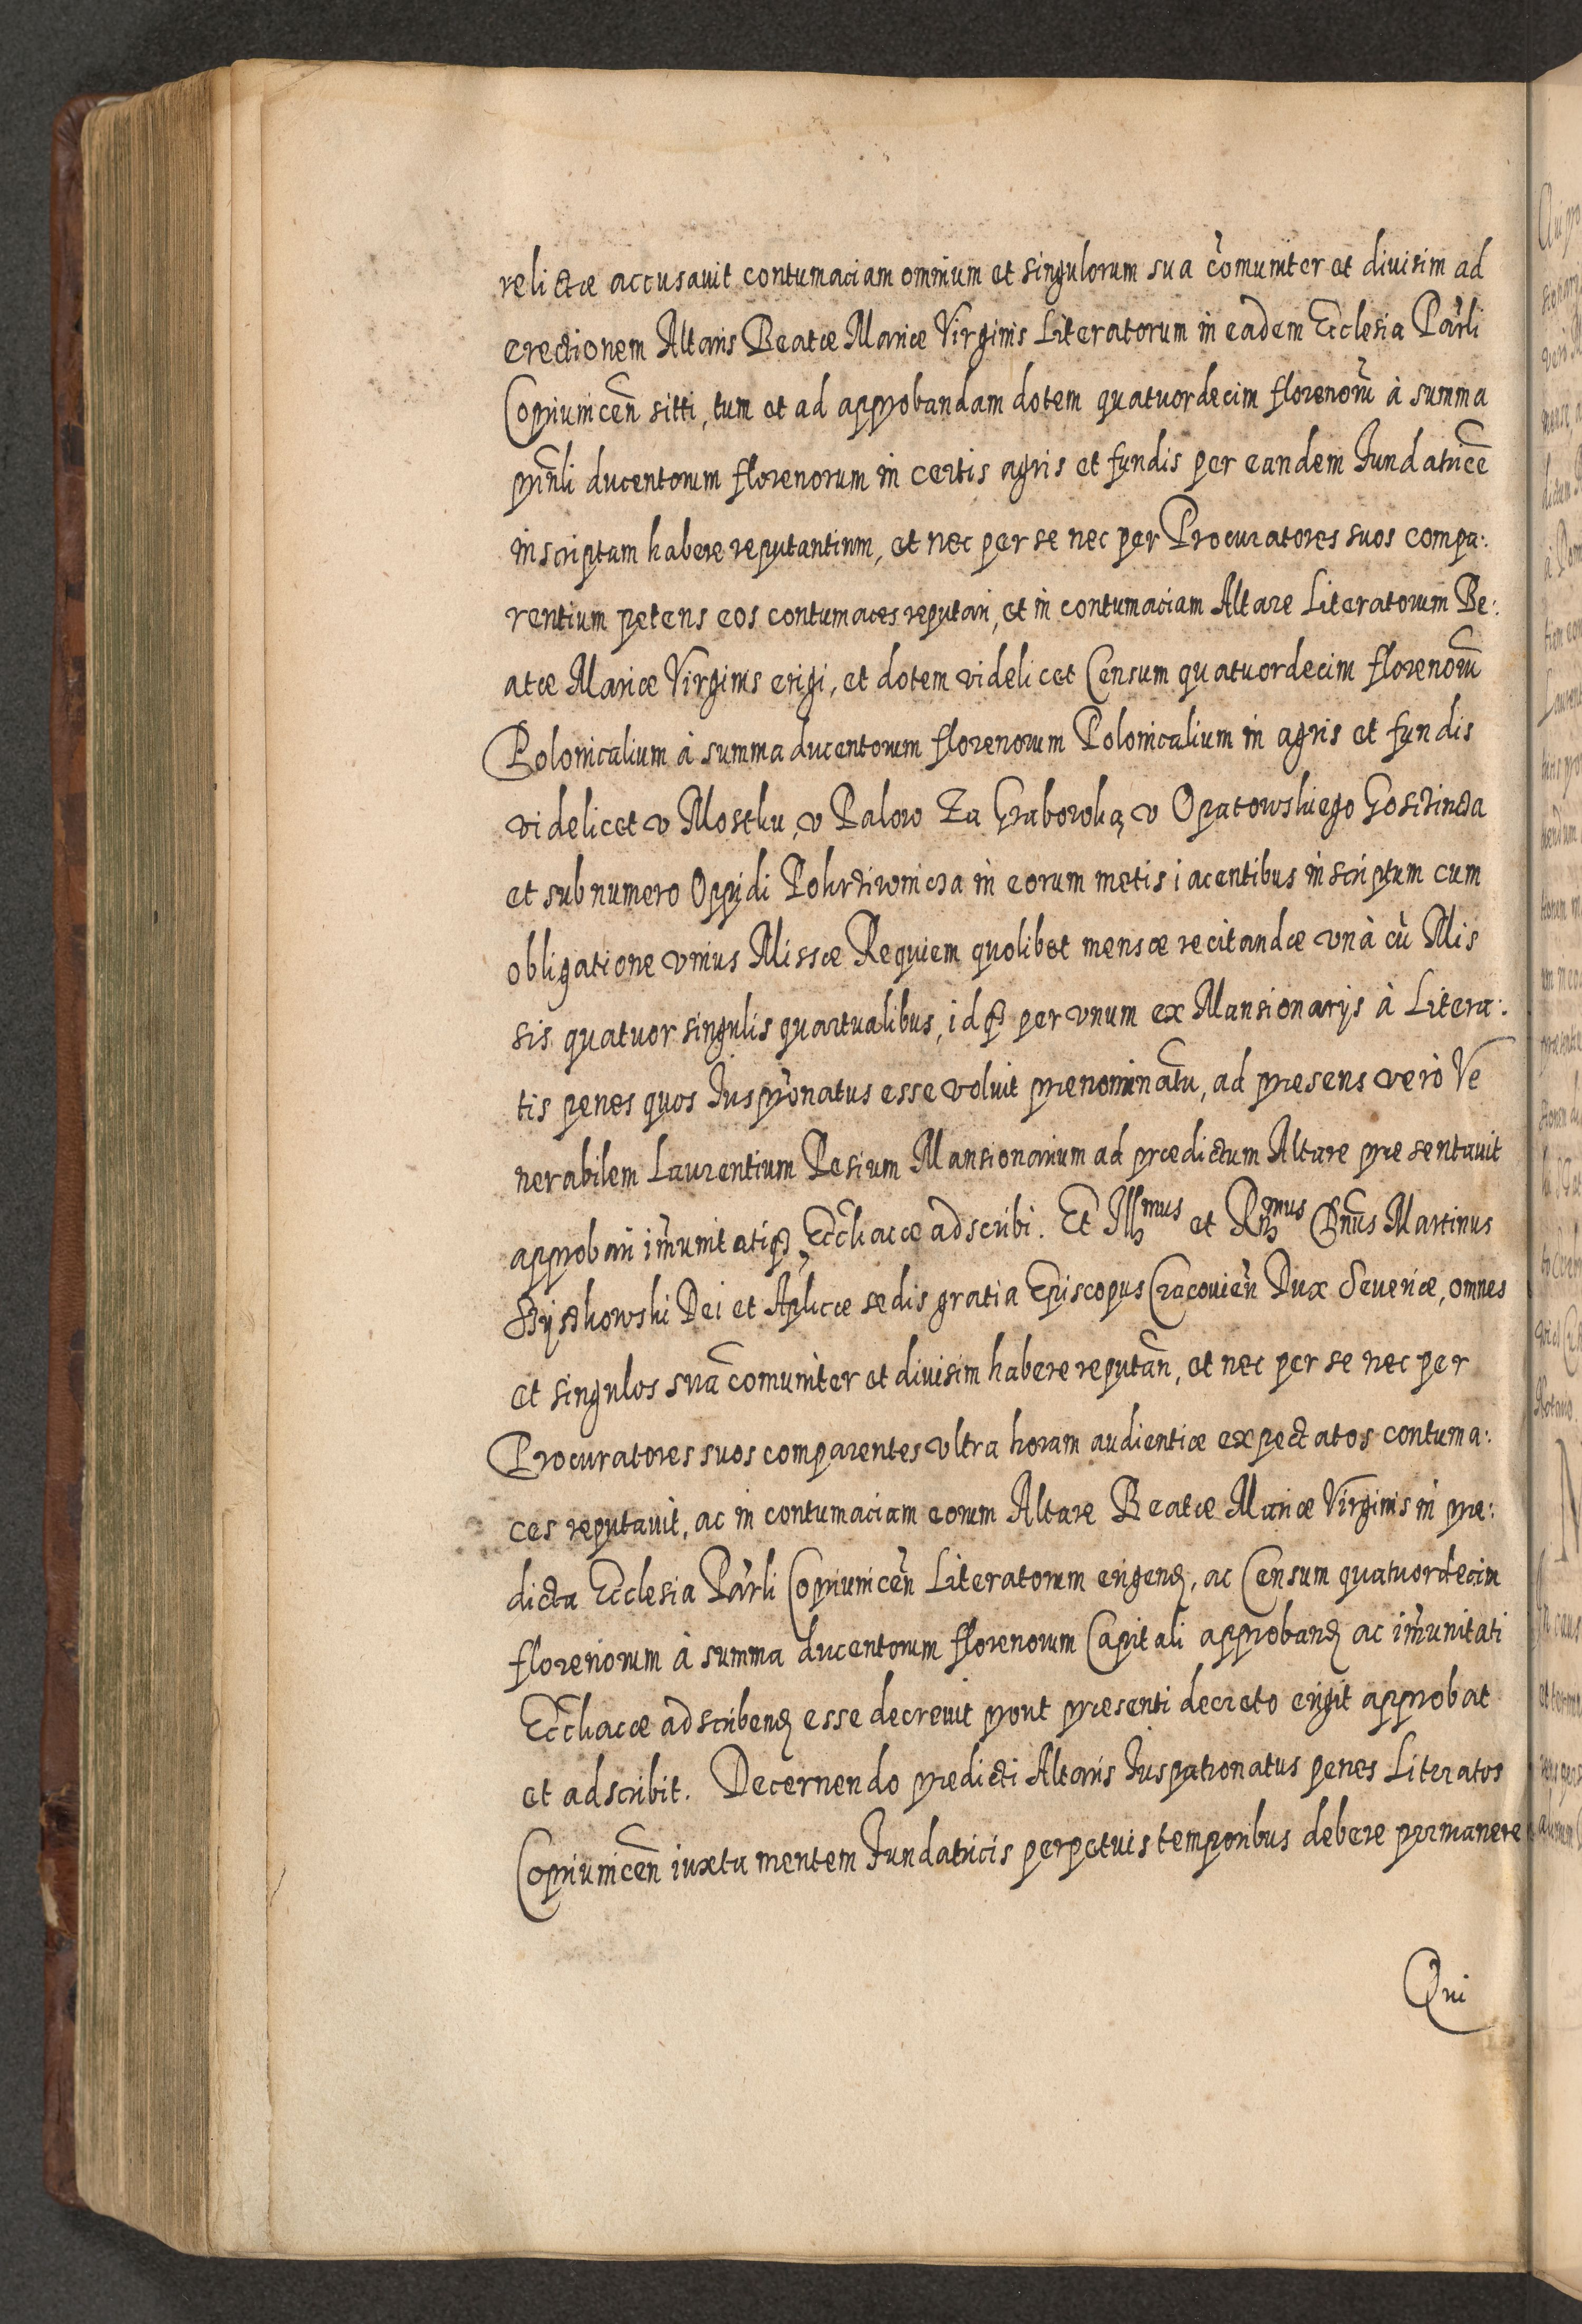 relictæ accusauit contumaciam omnium et singulorum sua com̃uniter et diuisim ad
erectionem Altaris Beatæ Mariæ Virginis Literatorum in eadem Ecclesia Pãrli
Copriunicẽn sitti, tum et ad approbandam dotem quatuordecim florenorũ à summa
prinli ducentorum florenorum in certis agris et fundis per eandem Fundatricẽ
inscriptam habere reputantium, et nec per se nec per Procuratores suos compa:
rentium petens eos contumaces reputari, et in contumaciam Altare Literatorum Be:
atæ Mariæ Virginis erigi, et dotem videlicet Censum quatuordecim florenorũ
Polonicalium à summa ducentorum florenorum Polonicalium in agris et fundis
videlicet v Mostku, v Palow Za Grabowką, v Opatowskiego Gosczincza
et sub numero Oppidi Pokrziwnicza in eorum metis iacentibus inscriptum cum
obligatione vnius Missæ Requiem quolibet mensæ recitandæ vnà cũ Mis
sis quatuor singulis quartualibus, idq; per vnum ex Mansionarijs à Litera:
tis penes quos Iusprõnatus esse voluit prenominatũ, ad presens verò Ve
nerabilem Laurentium Resium Mansionarium ad prædictum Altare presentauit
approbari im̃unitatiq; Ecc̃liacæ adscribi. Et Illmus et Rndmus Dñus Martinus
Szyszkowski Dei et Aplicæ sedis gratia Episcopus Cracouieñ Dux Seueriæ, omnes
et singulos suã comuniter et diuisim habere reputañ, et nec per se nec per
Procuratores suos comparentes vltra horam audientiæ expectatos contuma:
ces reputauit, ac in contumaciam eorum Altare Beatæ Mariæ Virginis in pre:
dicta Ecclesia Pãrli Copriunicẽn Literatorum erigend, ac Censum quatuordecim
florenorum à summa ducentorum florenorum Capitali approband ac im̃unitati
Ecc̃liacæ adscribend esse decreuit prout presenti decreto erigit approbat
et adscribit. Decernendo predicti Altaris Iuspatronatus penes Literatos
Copriunicẽn iuxta mentem Fundatricis perpetuis temporibus debere permanere
Qui